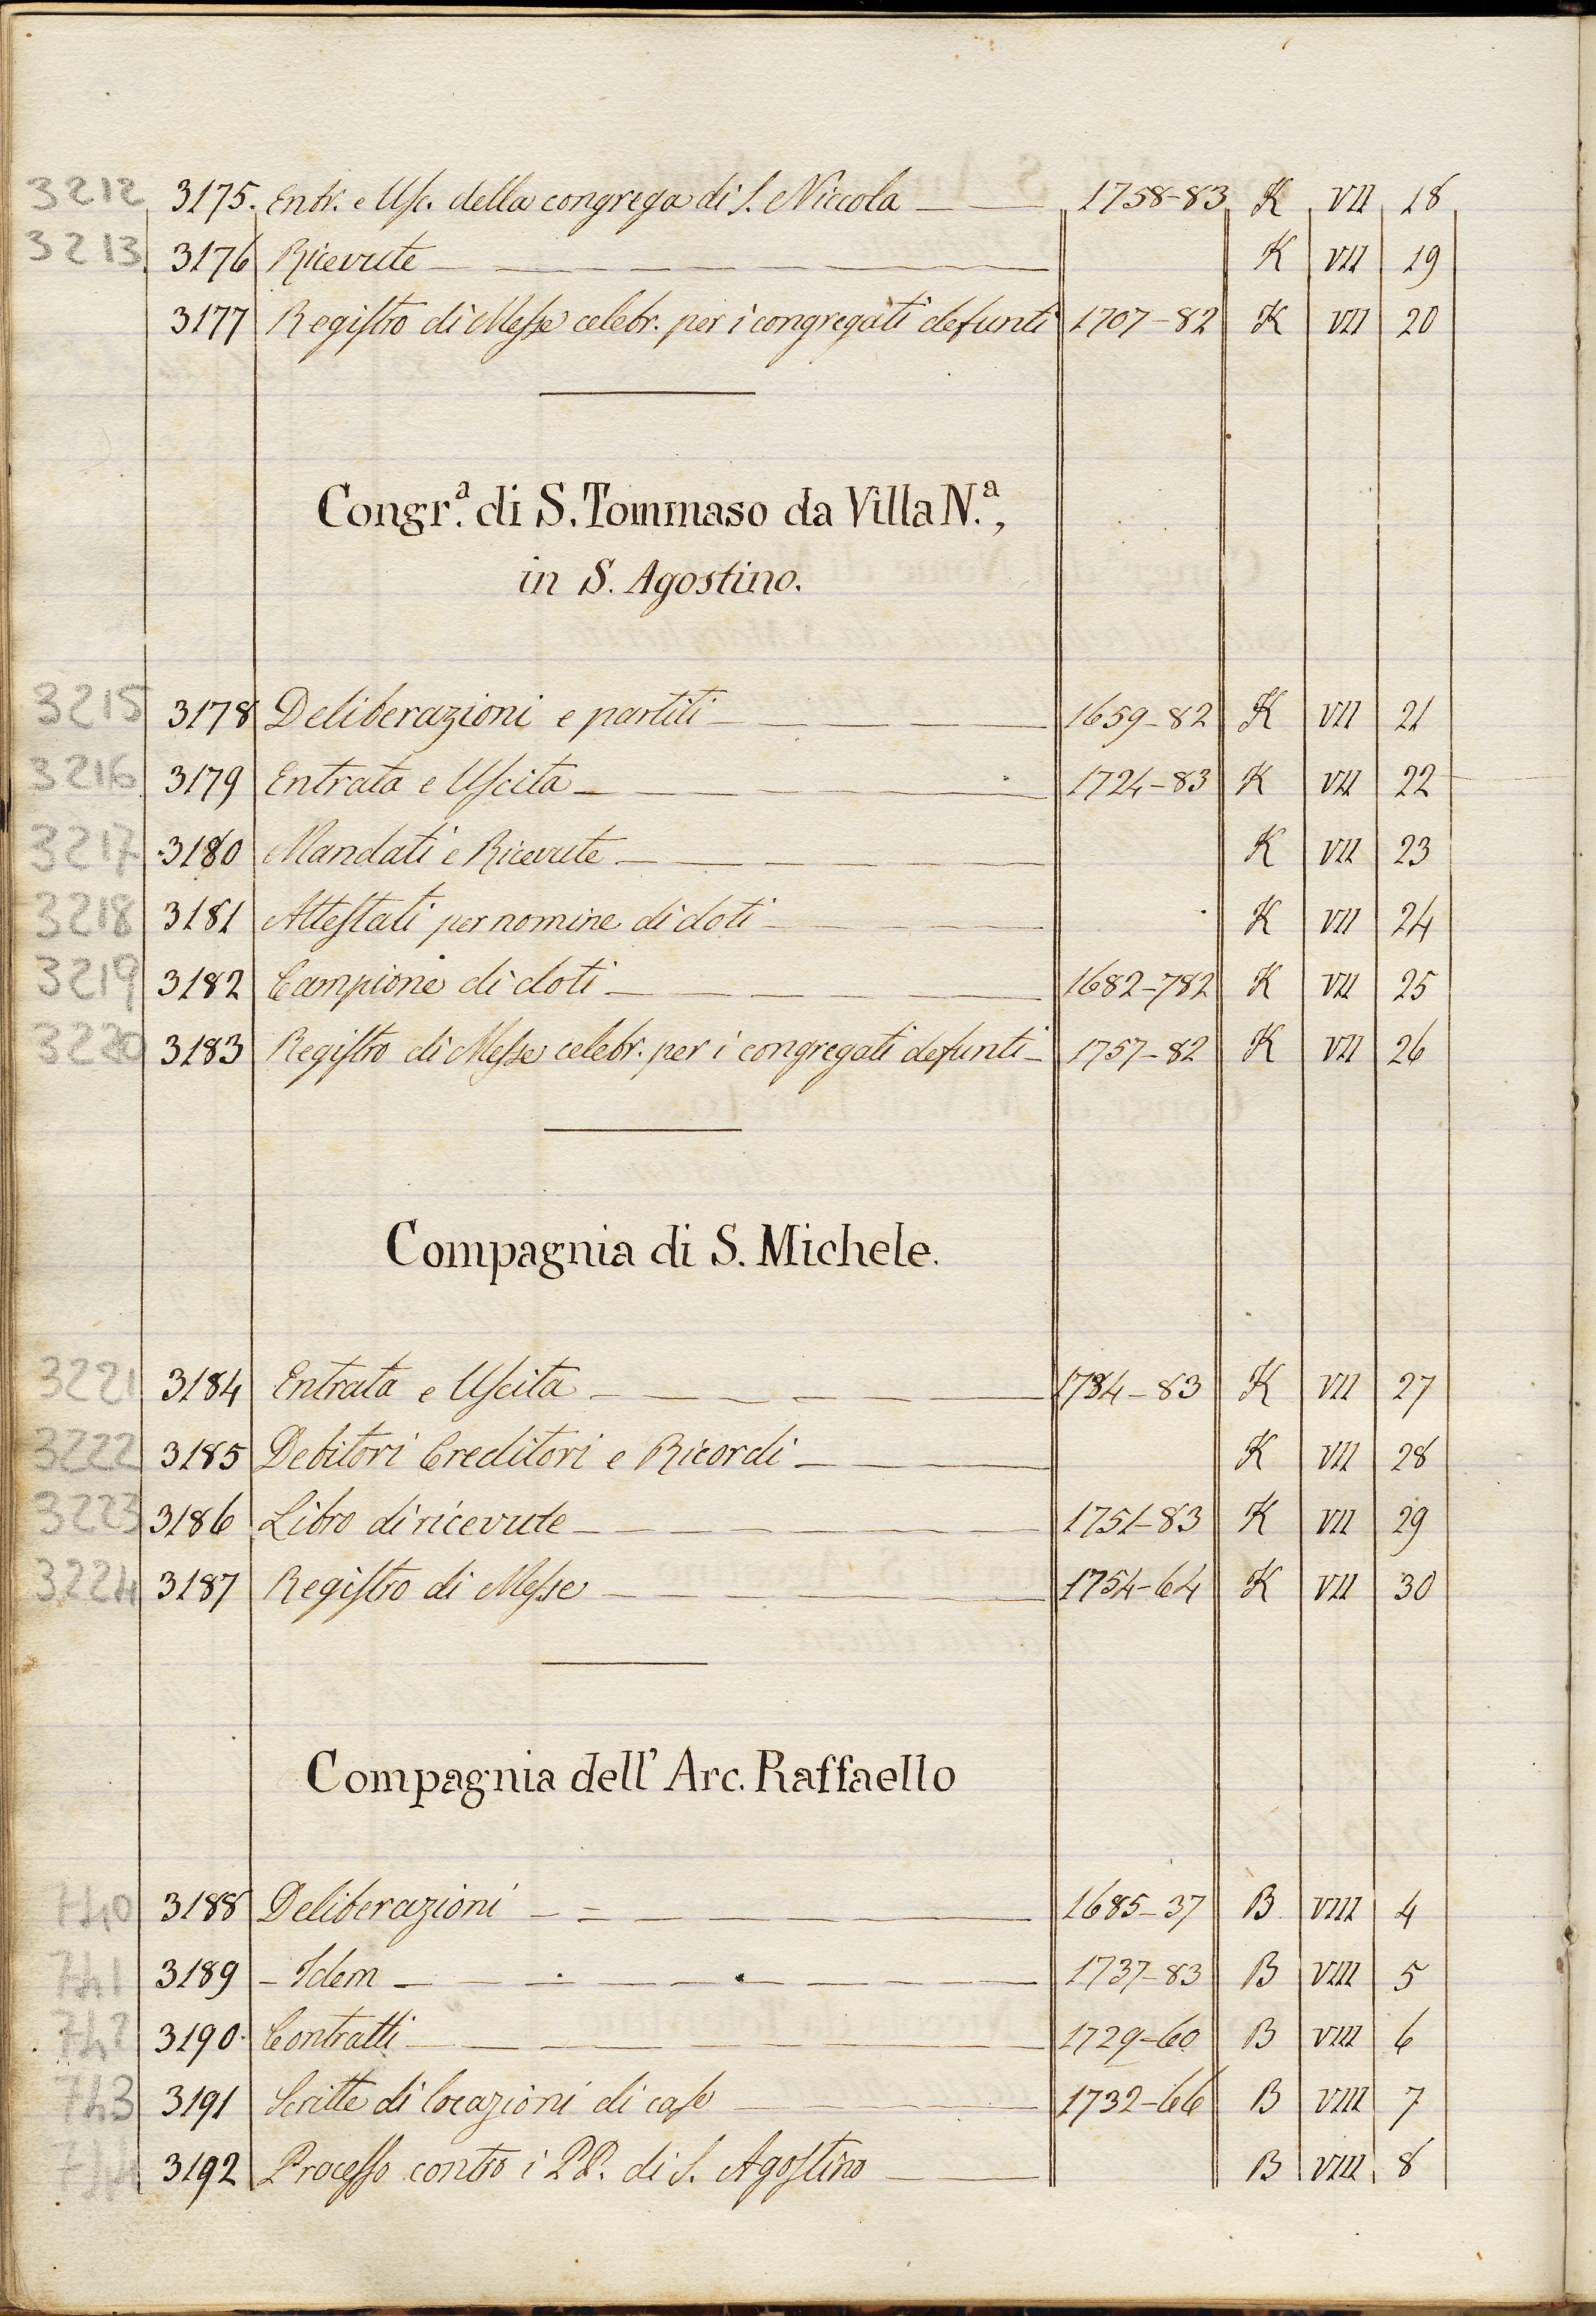 3212 3175. Entr. e Usc. della congrega di S. Niccola 1758-83 K VII 18
3213 3176 Ricevute K VII 19
3177 Registro di Messe celebr. per i congregati defunti 1707-82 K VII 20
Congr.a di S. Tommaso da Villa N.a,
in S. Agostino.
3215 3178 Deliberazioni e partiti 1659-82 K VII 21
3216 3179 Entrata e Uscita 1724-83 K VII 22
3217 3180 Mandati e Ricevute K VII 23
3218 3181 Attestati per nomine di doti K VII 24
3219 3182 Campione di doti 1682-782 K VII 25
3220 3183 Registro di Messe celebr. per i congregati defunti 1757-82 K VII 26
Compagnia di S. Michele.
3221 3184 Entrata e Uscita 1734-83 K VII 27
3222 3185 Debitori Creditori e Ricordi K VII 28
3223 3186 Libro di ricevute 1751-83 K VII 29
3224 3187 Registro di Messe 1754-64 K VII 30
Compagnia dell' Arc. Raffaello
740 3188 Deliberazioni 1685-37 B VIII 4
741 3189 - Idem 1737-83 B VIII 5
742 3190 Contratti 1729-60 B VIII 6
743 3191 Scritte di locazioni di case 1732-66 B VIII 7
744 3192 Processo contro i PP. di S. Agostino B VIII 8